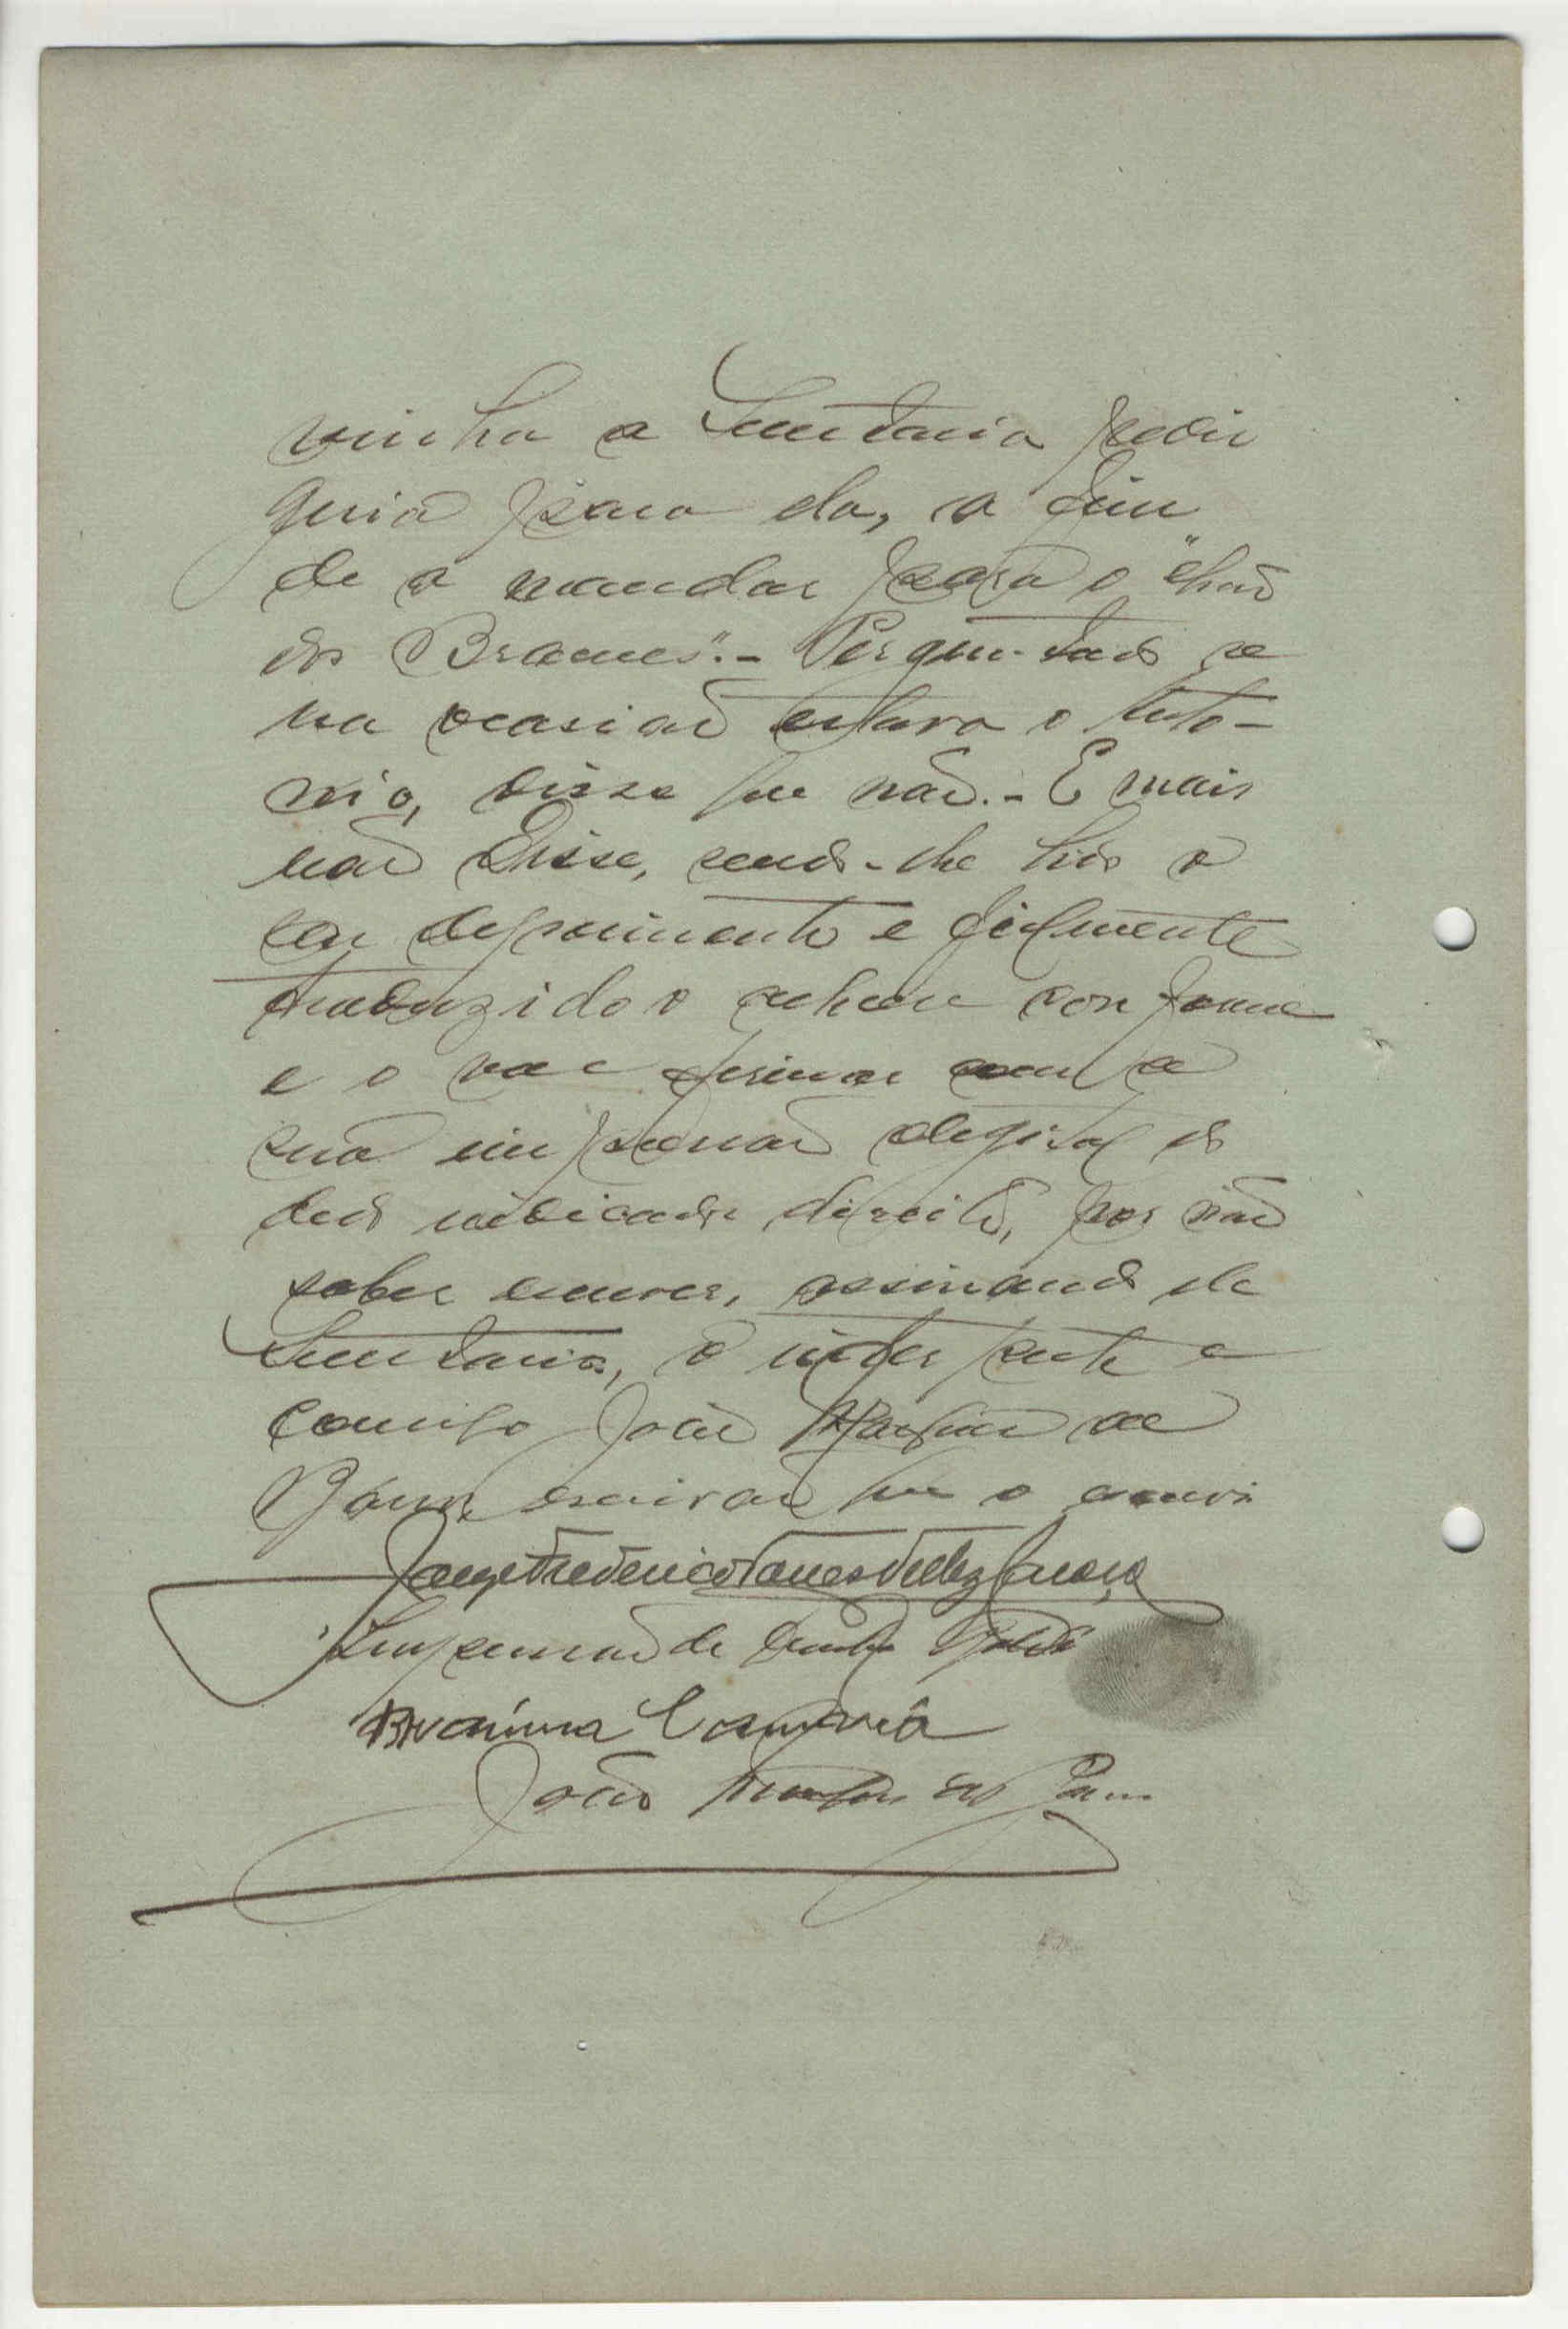 vinha a Secretaria pedir
guia para ela, a fim
de a mandar para o "chão
dos Brames".- Perguntado se
na ocasião estava o Anto-
nio, disse que não.- E mais
não disse, sendo-lhe lido o
seu depoimento e fielmente
traduzido o achou conforme
e o vae firmar com a
sua impressão degital do
dedo indicador direito, por não
saber escrever, assinando ele
Secretario, o interprete e
comigo João de
escrivão que o escrevi
Jorge Frederico Torres Vellez Caroço
Impressão de
Camará
João